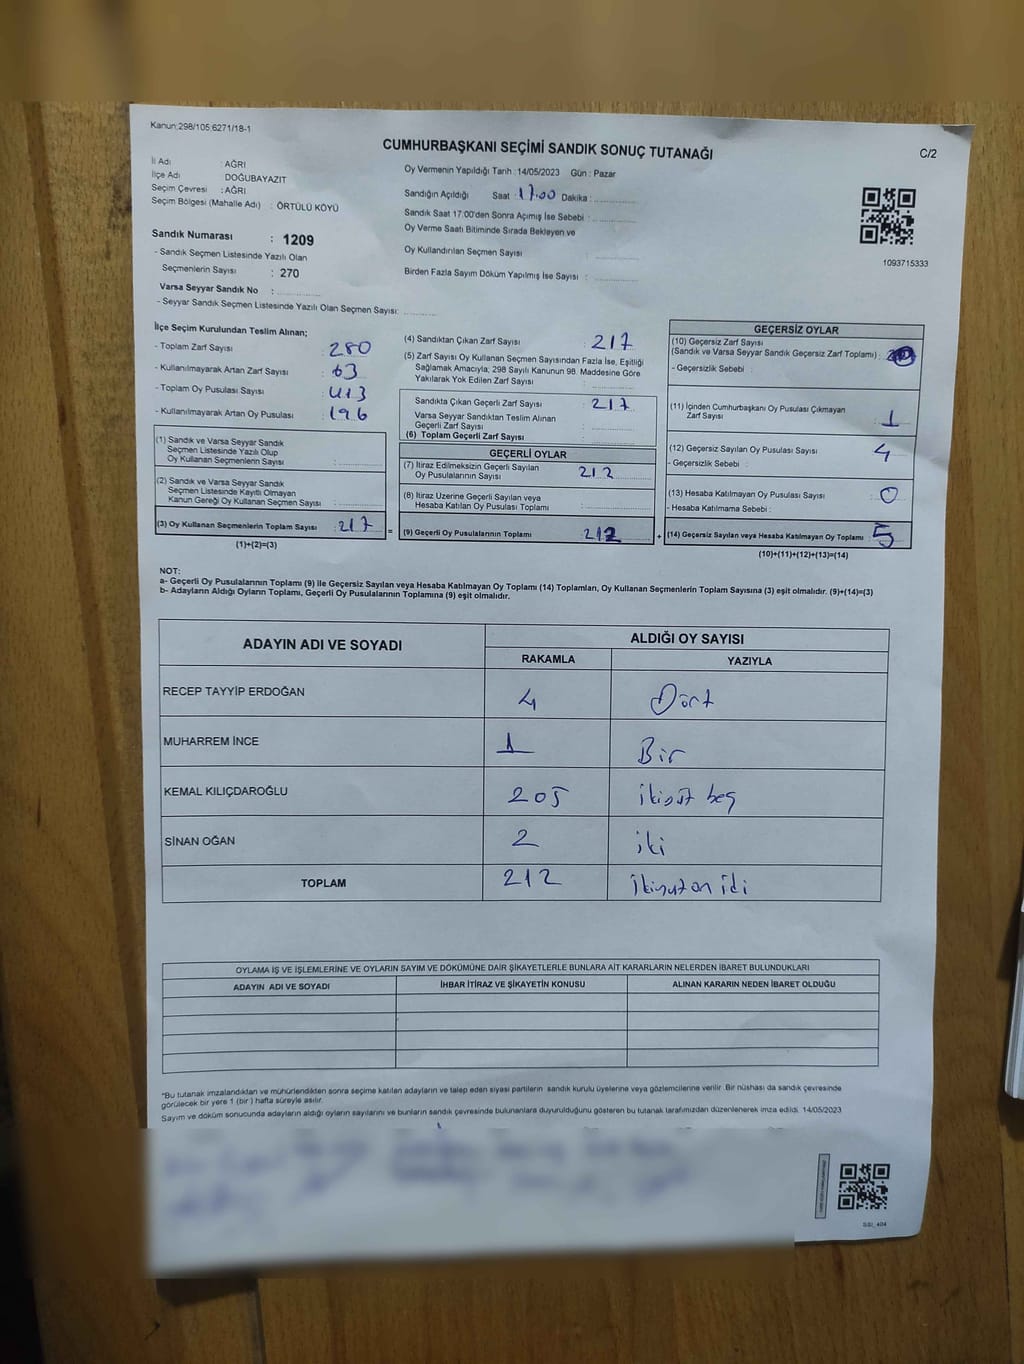 Kanun:298/105,6271/18-1
CUMHURBAŞKANI SEÇİMİ SANDIK SONUÇ TUTANAĞI
C/2
İl Adı : AĞRI
İlçe Adı DOĞUBAYAZIT
Seçim Çevresi : AĞRI
Seçim Bölgesi (Mahalle Adı) : ÖRTÜLÜ KÖYÜ
Sandık Numarası : 1209
- Sandık Seçmen Listesinde Yazılı Olan
Seçmenlerin Sayısı : 270
Varsa Seyyar Sandık No :
- Seyyar Sandık Seçmen Listesinde Yazılı Olan Seçmen Sayısı:
Oy Vermenin Yapıldığı Tarih : 14/05/2023 Gün : Pazar
Sandığın Açıldığı Saat : 17.00 Dakika :
Sandık Saat 17.00'den Sonra Açımış İse Sebebi :
Oy Verme Saati Bitiminde Sırada Bekleyen ve
Oy Kullandırılan Seçmen Sayısı :
Birden Fazla Sayım Döküm Yapılmış İse Sayısı :
1093715333
İlçe Seçim Kurulundan Teslim Alınan;
- Toplam Zarf Sayısı : 280
- Kullanılmayarak Artan Zarf Sayısı : 63
- Toplam Oy Pusulası Sayısı : 413
- Kullanılmayarak Artan Oy Pusulası : 196
(1) Sandık ve Varsa Seyyar Sandık
Seçmen Listesinde Yazılı Olup
Oy Kullanan Seçmenlerin Sayısı :
(2) Sandık ve Varsa Seyyar Sandık
Seçmen Listesinde Kayıtlı Olmayan
Kanun Gereği Oy Kullanan Seçmen Sayısı :
(3) Oy Kullanan Seçmenlerin Toplam Sayısı : 217
(1)+(2)=(3)
=
(4) Sandıktan Çıkan Zarf Sayısı : 217
(5) Zarf Sayısı Oy Kullanan Seçmen Sayısından Fazla İse, Eşitliği
Sağlamak Amacıyla; 298 Sayılı Kanunun 98. Maddesine Göre
Yakılarak Yok Edilen Zarf Sayısı :
Sandıkta Çıkan Geçerli Zarf Sayısı : 217
Varsa Seyyar Sandıktan Teslim Alınan
Geçerli Zarf Sayısı :
(6) Toplam Geçerli Zarf Sayısı :
GEÇERLİ OYLAR
(7) İtiraz Edilmeksizin Geçerli Sayılan
Oy Pusulalarının Sayısı : 212
(8) İtiraz Üzerine Geçerli Sayılan veya
Hesaba Katılan Oy Pusulası Toplamı :
(9) Geçerli Oy Pusulalarının Toplamı : 212
+
GEÇERSİZ OYLAR
(10) Geçersiz Zarf Sayısı
(Sandık ve Varsa Seyyar Sandık Geçersiz Zarf Toplamı) :
- Geçersizlik Sebebi :
(11) İçinden Cumhurbaşkanı Oy Pusulası Çıkmayan
Zarf Sayısı : 1
(12) Geçersiz Sayılan Oy Pusulası Sayısı : 4
- Geçersizlik Sebebi :
(13) Hesaba Katılmayan Oy Pusulası Sayısı : 0
- Hesaba Katılmama Sebebi :
(14) Geçersiz Sayılan veya Hesaba Katılmayan Oy Toplamı : 5
(10)+(11)+(12)+(13)=(14)
NOT:
a- Geçerli Oy Pusulalarının Toplamı (9) ile Geçersiz Sayılan veya Hesaba Katılmayan Oy Toplamı (14) Toplamları, Oy Kullanan Seçmenlerin Toplam Sayısına (3) eşit olmalıdır. (9)+(14)=(3)
b- Adayların Aldığı Oyların Toplamı, Geçerli Oy Pusulalarının Toplamına (9) eşit olmalıdır.
ADAYIN ADI VE SOYADI
ALDIĞI OY SAYISI
RAKAMLA YAZIYLA
RECEP TAYYİP ERDOĞAN 4 Dört
MUHARREM İNCE 1 Bir
KEMAL KILIÇDAROĞLU 205 ikiyüz beş
SİNAN OĞAN 2 iki
TOPLAM 212 ikiyüzon iki
OYLAMA İŞ VE İŞLEMLERİNE VE OYLARIN SAYIM VE DÖKÜMÜNE DAİR ŞİKAYETLERLE BUNLARA AİT KARARLARIN NELERDEN İBARET BULUNDUKLARI
ADAYIN ADI VE SOYADI İHBAR İTİRAZ VE ŞİKAYETİN KONUSU ALINAN KARARIN NEDEN İBARET OLDUĞU
*Bu tutanak imzalandıktan ve mühürlendikten sonra seçime katılan adayların ve talep eden siyasi partilerin sandık kurulu üyelerine veya gözlemcilerine verilir. Bir nüshası da sandık çevresinde
görülecek bir yere 1 (bir) hafta süreyle asılır.
Sayım ve döküm sonucunda adayların aldığı oyların sayılarını ve bunların sandık çevresinde bulunanlara duyurulduğunu gösteren bu tutanak tarafımızdan düzenlenerek imza edildi. 14/05/2023